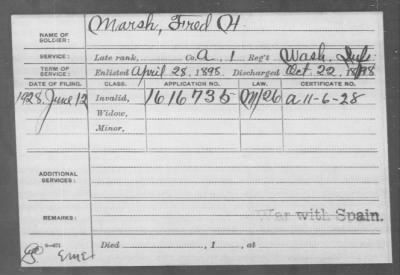 NAME OF SOLDIER: Marsh, Fred H.
SERVICE: Late rank, Co. A, 1 Reg't Wash. Inf.
TERM OF SERVICE: Enlisted April 28, 1898. Discharged Oct. 22, 1898
DATE OF FILING. CLASS. APPLICATION NO. LAW. CERTIFICATE NO.
1928. June 12 Invalid, 1616735 a 11-6-28
Widow,
Minor,
ADDITIONAL SERVICES:
REMARKS: War with Spain.
Died , 1 , at